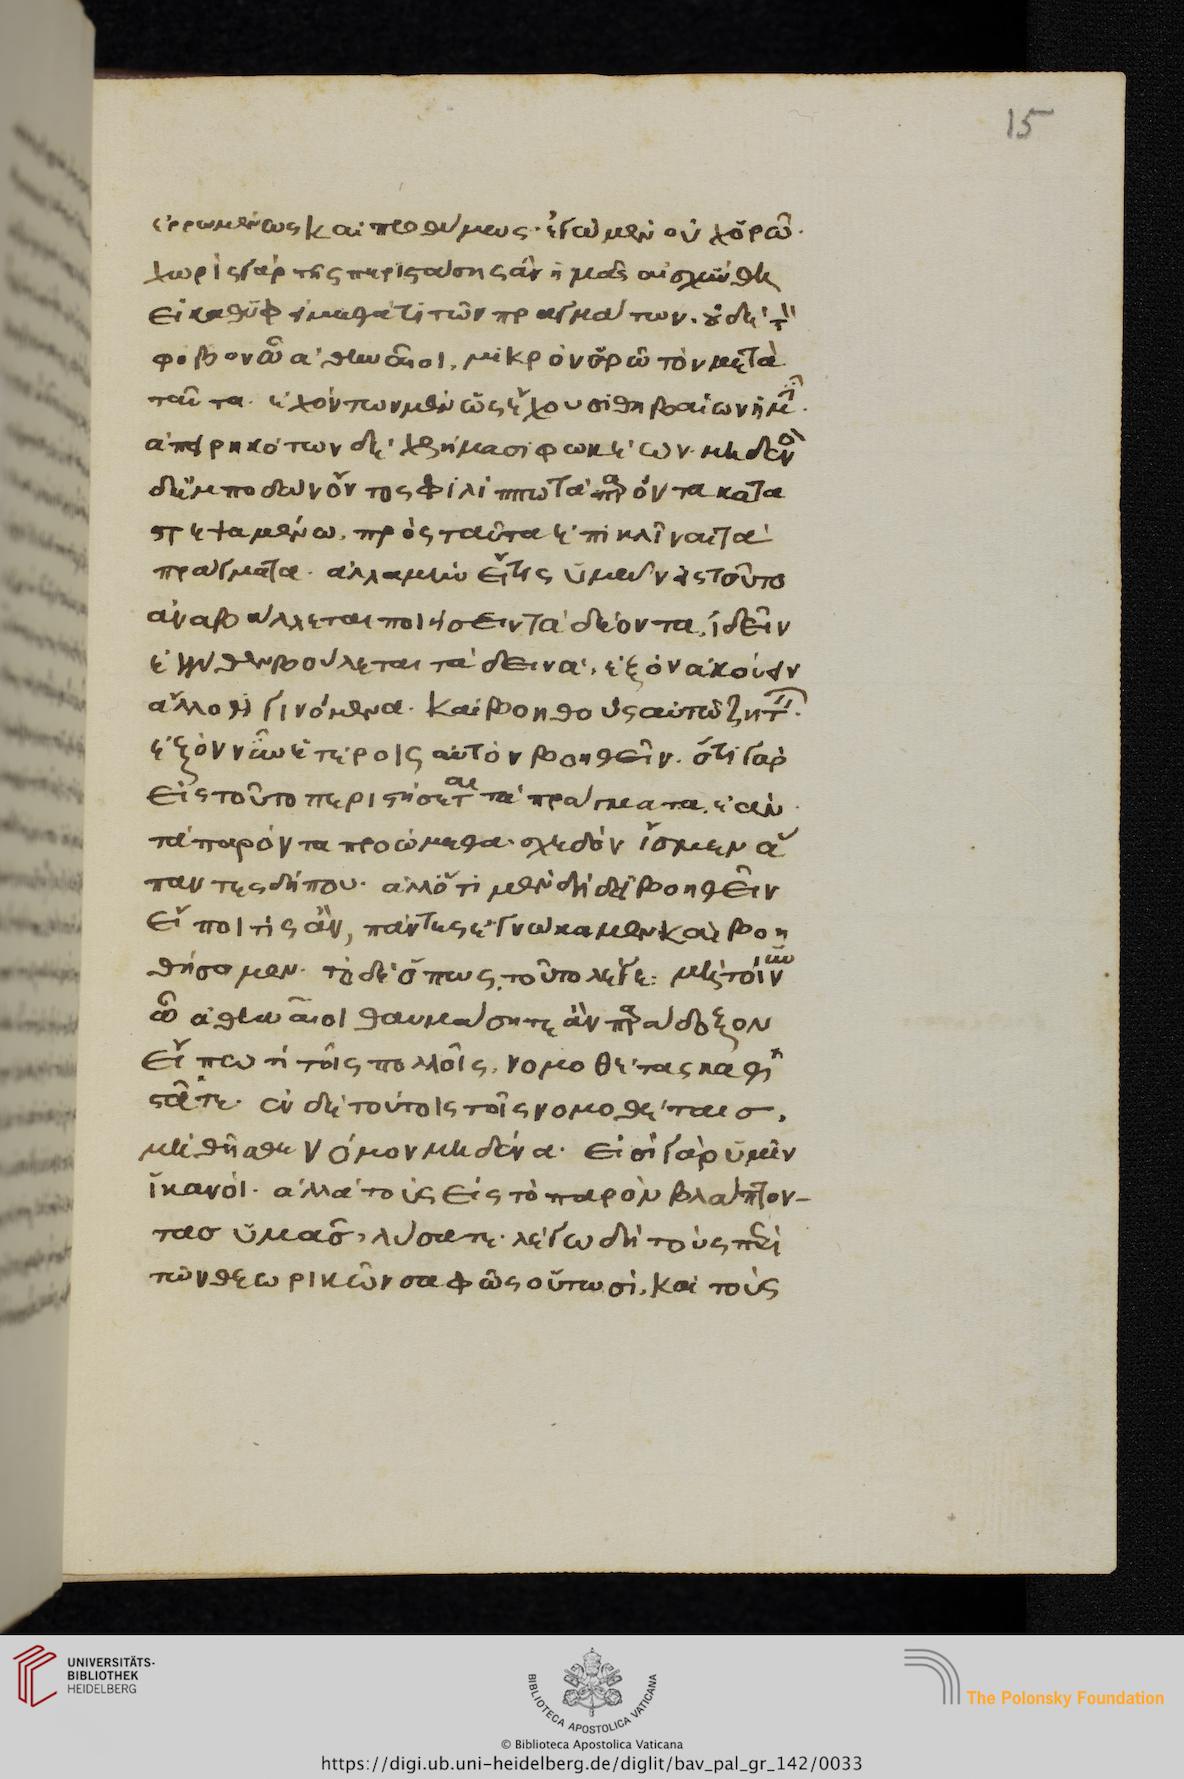 15
ἐρρωμένως καὶ προθύμως· ἐγὼ μὲν οὐχ ὁρῶ·
χωρὶς γὰρ τῆς περιστάσης ἂν ἡμᾶς αἰσχύνης
εἰ καθυφείμεθά τι τῶν πραγμάτων. οὐδὲ τὸν
φόβον ὦ ἄνδρες ἀθηναῖοι, μικρὸν ὁρῶ τὸν μετὰ
ταῦτα· ἐχόντων μὲν ὡς ἔχουσι θηβαίων ἡμῖν·
ἀπειρηκότων δὲ χρήμασι φωκέων· μηδενὸς
δ' ἐμποδὼν ὄντος φιλίππω τὰ παρόντα κατα
στρεψαμένω. πρὸς ταῦτα ἐπικλῖναι τὰ
πράγματα· ἀλλὰ μὴν εἴ τις ὑμῶν εἰς τοῦτο
ἀναβάλλεται ποιήσειν τὰ δέοντα, ἰδεῖν
ἐγγύθεν βούλεται τὰ δεινά, ἐξὸν ἀκούειν
ἄλλοθι γινόμενα· καὶ βοηθοὺς αὑτῶ ζητεῖν·
ἐξὸν νῦν ἑτέροις αὐτὸν βοηθεῖν. ὅτι γὰρ
εἰς τοῦτο περιστήσεται τὰ πράγματα, ἐὰν
τὰ παρόντα προώμεθα· σχεδὸν ἴσμεν ἅ
παντες δήπου· ἀλλ' ὅτι μὲν δὴ δεῖ βοηθεῖν
εἴποι τις ἄν, πάντες ἐγνώκαμεν καὶ βοη
θήσομεν· τὸ δὲ ὅπως, τοῦτο λέγε: μὴ τοίνυν
ὦ ἄνδρες ἀθηναῖοι θαυμάσητε ἂν παράδοξον
εἴπω τι τοῖς πολλοῖς, νομοθέτας καθί
στατε· ἐν δὲ τούτοις τοῖς νομοθέταισ,
μὴ θῆσθε νόμον μηδένα· εἰσὶ γὰρ ὑμῖν
ἱκανοί· ἀλλὰ τοὺς εἰς τὸ παρὸν βλάπτον-
τασ ὑμᾶσ, λύσατε· λέγω δὴ τοὺς περὶ
τῶν θεωρικῶν σαφῶς οὑτωσί, καὶ τοὺς
UNIVERSITÄTS-
BIBLIOTHEK
HEIDELBERG
BIBLIOTECA APOSTOLICA VATICANA
The Polonsky Foundation
© Biblioteca Apostolica Vaticana
https://digi.ub.uni-heidelberg.de/diglit/bav_pal_gr_142/0033